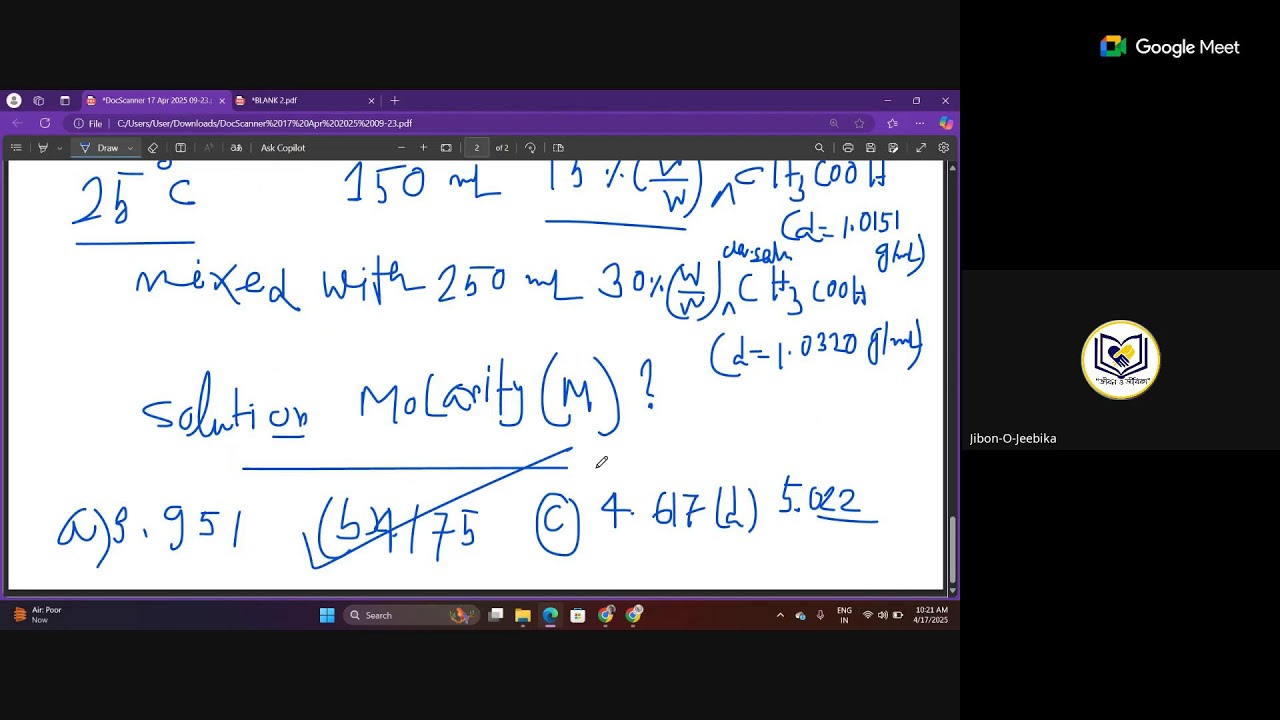 Google Meet
*DocScanner 17 Apr 2025 09-23.p
*BLANK 2.pdf
File
C:/Users/User/Downloads/DocScanner%2017%20Apr%202025%2009-23.pdf
Draw
Ask Copilot
2
of 2
25°C 150 mL 15%(W/W) CH3COOH
(d=1.0151 g/mL)
mixed with 250 mL 30%(W/W) CH3COOH
(d=1.0320 g/mL)
solution Molarity(M)?
a)3.951 (b)4.175 (c) 4.617 (d) 5.022
"জীবন ও জীবিকা"
Jibon-O-Jeebika
Air: Poor
Now
Search
ENG
IN
10:21 AM
4/17/2025